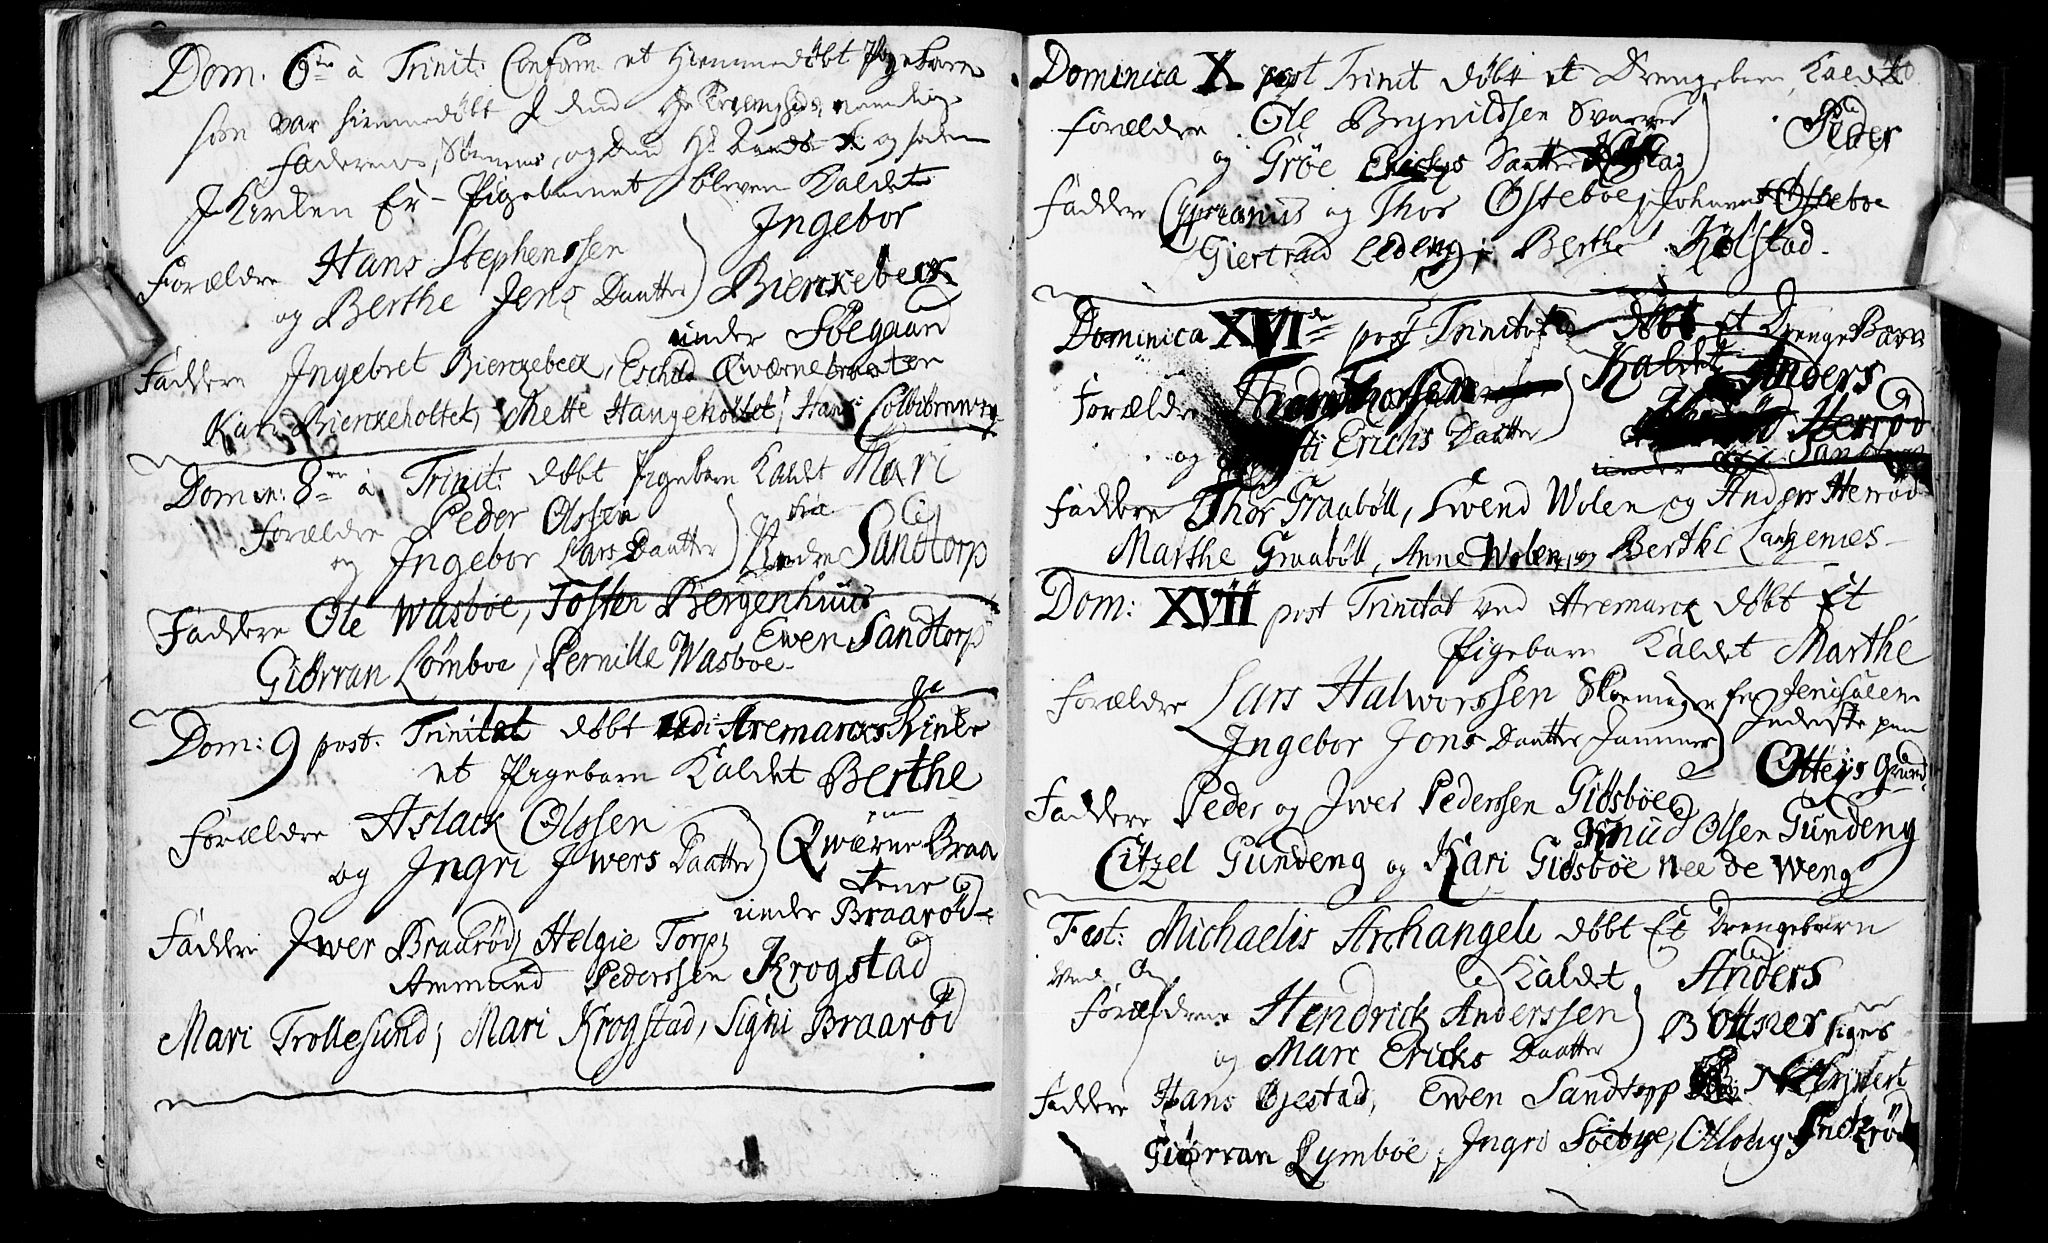 Dom. 6te à Trinit: Confirm et Hiemmedøbt Pigebarn
som var hiemmedøbt
Faderens, Sønnens, og den H: Aands og siden
J Kirken Er Pigebarnet bleven Kaldet
Ingebor
Forældre Hans Stephenssen
og Berthe Jens Daatter Bierkebeck
under Søegaard
Faddere Ingebret Bierkebeck, Eschild Qwærnebraaten
Kari Bierkeholtet, Mette Hangeholtet, Hans Colbiørnerøe
Domin: 8ve à Trinit: døbt Pigebarn Kaldt Mari
Forældre Peder Olssen fra
og Ingebor Lars Daatter Nedre Sandtorp
Faddere Ole Wasbøe, Tosten Bergenhuus
Ewen Sandtorp
Giørran Lømboe, Pernille Wasboe
Dom: 9 post. Trinitat døbt udi Aremarcks Kirke
et Pigebarn Kaldet Berthe
Forældre Aslack Olssen
og Ingri Iwers Daatter Qwærne Braa
tene
under Braarød
Faddere Iwer Braarød, Helgie Torp,
Ammund Pederssen Krogstad
Mari Trollesund, Mari Krogstad, Signi Braarød
Dominica X post Trinit døbt et Drengebarn Kaldet
Forældre Ole Brynildsen Peder
og Grøe Erichs Daatter
Faddere Cyprianus og Thor Østeboe, Johannes Østeboe
Giertrud Ledeng, Berthe Kølstad
Dominica XVIde post Trinitatis døbt Et DrengeBarn
Kaldet Anders
Forældre
og Erichs Daatter Herrød
under
Faddere Thor Graabøll, Swend Wolen og Anders Herrød
Marthe Graabøll, Anne Wolen, og Berthe Langenes
Dom: XVII post Trinitat ved Aremarck døbt Et
Pigebarn Kaldet Marthe
Forældre Lars Halworssen Skoemager fra Jerusalem
Ingebor Jons Daatter Jammer Inderste paa
Otteys Grund
Faddere Peder og Iwer Pederssen Giøsbøe
Knud Olsen Gundeng
Citzel Gundeng og Kari Giøsbøe nee de Weng
Fest: Michaelis Archangeli døbt Et Drengebarn
Ved Øe Kaldet Anders
Forældrene Hendrick Anderssen
og Mari Ericks Daatter Bottner
Faddere Hans Bjestad, Ewen Sandtorp
Giørran Lymbøe, Ingri Søebye,